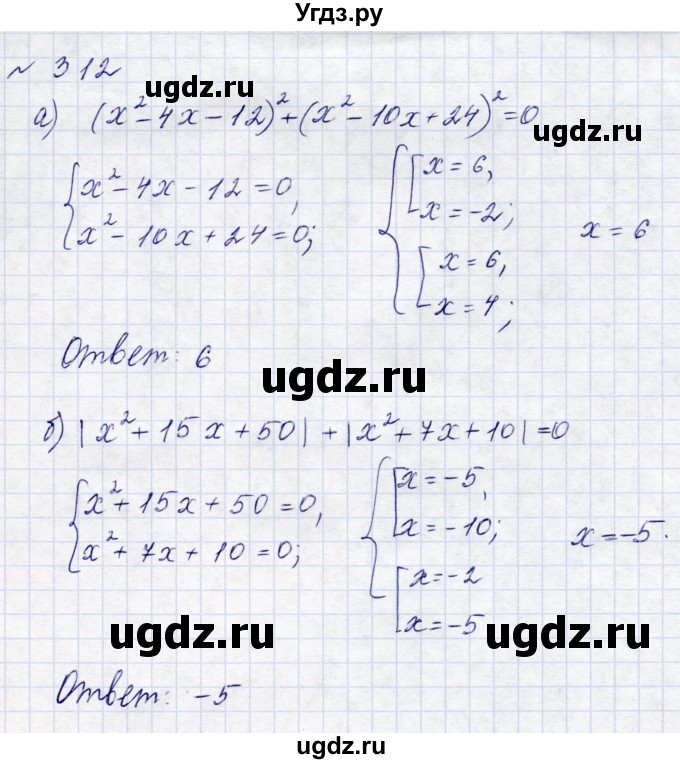 Угдз.ру
№ 312
ugdz.ru
а) (x²-4x-12)²+(x²-10x+24)²=0
ugdz.ru
{x²-4x-12=0,
x²-10x+24=0;
{[x=6,
x=-2;
[x=6,
x=4;
x=6
Ответ: 6
ugdz.ru
б) |x²+15x+50|+|x²+7x+10|=0
{x²+15x+50=0,
x²+7x+10=0;
{[x=-5,
x=-10;
[x=-2
x=-5
x=-5.
ugdz.ru
ugdz.ru
Ответ: -5
ugdz.ru